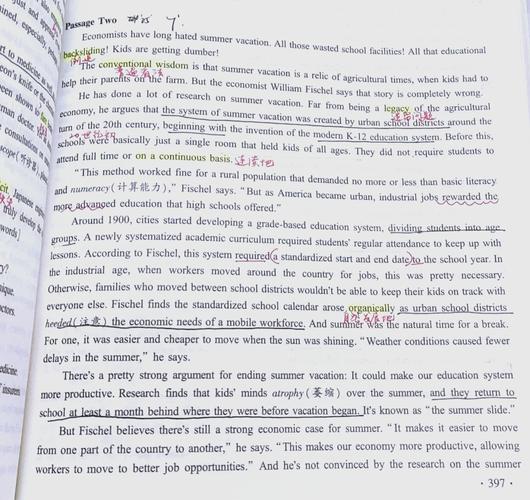 Passage Two
Economists have long hated summer vacation. All those wasted school facilities! All that educational
backsliding! Kids are getting dumber!
倒退
The conventional wisdom is that summer vacation is a relic of agricultural times, when kids had to
普遍看法
help their parents on the farm. But the economist William Fischel says that story is completely wrong.
He has done a lot of research on summer vacation. Far from being a legacy of the agricultural
economy, he argues that the system of summer vacation was created by urban school districts around the
turn of the 20th century, beginning with the invention of the modern K-12 education system. Before this,
schools were basically just a single room that held kids of all ages. They did not require students to
attend full time or on a continuous basis. 连续地
"This method worked fine for a rural population that demanded no more or less than basic literacy
and numeracy(计算能力)," Fischel says. "But as America became urban, industrial jobs rewarded the
more advanced education that high schools offered."
Around 1900, cities started developing a grade-based education system, dividing students into age
groups. A newly systematized academic curriculum required students' regular attendance to keep up with
lessons. According to Fischel, this system required a standardized start and end date to the school year. In
the industrial age, when workers moved around the country for jobs, this was pretty necessary.
Otherwise, families who moved between school districts wouldn't be able to keep their kids on track with
everyone else. Fischel finds the standardized school calendar arose organically as urban school districts
heeded(注意) the economic needs of a mobile workforce. And summer was the natural time for a break.
For one, it was easier and cheaper to move when the sun was shining. "Weather conditions caused fewer
delays in the summer," he says.
There's a pretty strong argument for ending summer vacation: It could make our education system
more productive. Research finds that kids' minds atrophy(萎缩) over the summer, and they return to
school at least a month behind where they were before vacation began. It's known as "the summer slide."
But Fischel believes there's still a strong economic case for summer. "It makes it easier to move
from one part of the country to another," he says. "This makes our economy more productive, allowing
workers to move to better job opportunities." And he's not convinced by the research on the summer
· 397 ·